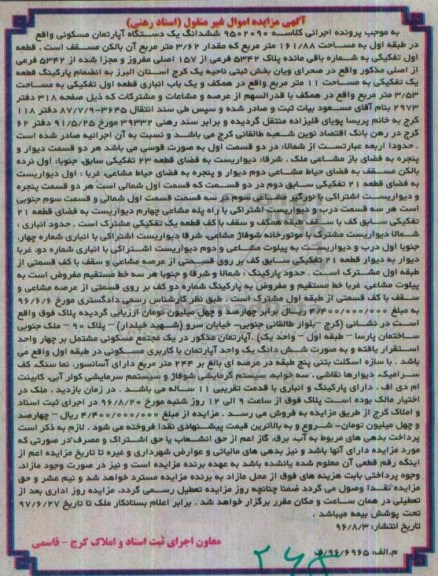 آگهی مزایده اموال غیر منقول (اسناد رهنی)
به موجب پرونده اجرائی کلاسه ۹۵۰۲۰۹۰ ششدانگ یک دستگاه آپارتمان مسکونی واقع
در طبقه اول به مساحت ۱۶۱/۸۸ متر مربع که مقدار ۳/۶۲ متر مربع آن بالکن مسقف است. قطعه
اول تفکیکی به شماره باقی مانده پلاک ۵۳۴۲ فرعی از ۱۵۷ اصلی مفروز و مجزا شده از ۵۳۴۲ فرعی
از اصلی مذکور واقع در صحرای ویان بخش ثبتی ناحیه یک کرج استان البرز به انضمام پارکینگ قطعه
یک تفکیکی به مساحت ۱۱ متر مربع واقع در همکف و یک باب انباری قطعه اول تفکیکی به مساحت
۳/۵۳ متر مربع واقع در همکف با قدرالسهم از عرصه و مشاعات و مشترکات که ذیل صفحه ۳۱۸ دفتر
۲۹۷۳ بنام آقای مسعود بیات ثبت و صادر شده و سپس طی سند انتقال ۳۶۴۵-۸۷/۷/۹ دفترخانه ۱۱۸
کرج به خانم پریسا پویای قلیزاده منتقل گردیده و برابر سند رهنی ۳۹۳۳۲ مورخ ۹۱/۵/۲۵ دفتر ۶۲
کرج در رهن بانک اقتصاد نوین شعبه طالقانی کرج می باشد و نسبت به آن اجرائیه صادر شده است
. حدود: اربعه عبارتست از شمالا، در دو قسمت اول به صورت قوسی می باشد هر دو قسمت دیوار و
پنجره به فضای باز مشاعی ملک . شرقا: دیواریست به فضای قطعه ۲۳ تفکیکی سابق، جنوبا: اول نرده
بالکن مسقف به فضای حیاط مشاعی دوم دیوار و پنجره به فضای حیاط مشاعی، غربا : اول دیواریست
به فضای قطعه ۲۱ تفکیکی سابق دوم در دو قسمت که قسمت اول شمالی است هر دو قسمت پنجره
و دیواریست اشتراکی با نورگیر مشاعی سوم در سه قسمت قسمت اول شمالی و قسمت سوم جنوبی
است هر سه قسمت درب و دیواریست اشتراکی با راه پله مشاعی چهارم دیواریست به فضای قطعه ۲۱
تفکیکی سابق کف با سقف طبقه همکف و سقف با کف قطعه یک تفکیکی مشترک است . حدود انباری :
شمالا دیواریست مشترک با موتورخانه شوفاژ مشاعی، شرقا دیواریست اشتراکی با انباری شماره چهار،
جنوبا اول درب و دیواریست به پیلوت مشاعی و دوم دیواریست اشتراکی با انباری شماره دو، غربا
دیوار به دیوار قطعه ۲۱ تفکیکی سابق کف بر روی قسمتی از عرصه مشاعی و سقف با کف قسمتی از
طبقه اول مشترک است . حدود پارکینگ : شمالا و شرقا و جنوبا هر سه خط مستقیم مفروض است به
پیلوت مشاعی، غربا خط مستقیم و مفروض به پارکینگ شماره دو کف بر روی قسمتی از عرصه مشاعی و
سقف با کف قسمتی از طبقه اول مشترک است . طبق نظر کارشناس رسمی دادگستری مورخ ۹۶/۶/۶
به مبلغ ۴/۴۰۰/۰۰۰/۰۰۰ ریال برابر چهارصد و چهل میلیون تومان ارزیابی گردیده پلاک فوق واقع
است در نشانی (کرج - بلوار طالقانی جنوبی- خیابان سرو (شهید خیلدار) - پلاک ۹۰ - ملک جنوبی
ساختمان پارسا - طبقه اول - واحد یک). آپارتمان مذکور در یک مجتمع مسکونی مشتمل بر چهار واحد
استقرار یافته و به صورت شش دانگ یک واحد آپارتمان با کاربری مسکونی در طبقه اول واقع می
باشد . با سازه اسکلت بتنی پنج طبقه در عرصه ای بالغ بر ۲۴۴ متر مربع دارای آسانسور، نما سنگ، کف
سرامیک، دیوارها نقاشی ، سه خوابه سیستم گرمایشی شوفاژ و سیستم سرمایشی کولر آبی، کابینت
ام دی اف . دارای پارکینگ و انباری با قدمت تقریبی ۱۱ ساله می باشد . در زمان بازدید ، ملک در
اختیار مالک بوده است پلاک فوق از ساعت ۹ الی ۱۲ روز شنبه مورخ ۹۶/۸/۲۰ در اجرای ثبت اسناد
و املاک کرج از طریق مزایده به فروش می رسد . مزایده از مبلغ ۴/۴۰۰/۰۰۰/۰۰۰ ریال - چهارصد
و چهل میلیون تومان- شروع و به بالاترین قیمت پیشنهادی نقدا فروخته می شود . لازم به ذکر است
پرداخت بدهی های مربوطه به آب، برق، گاز اعم از حق انشعاب یا حق اشتراک و مصرف در صورتی که
مورد مزایده دارای آنها باشد و نیز بدهی های مالیاتی و عوارض شهرداری و غیره تا تاریخ مزایده اعم از
اینکه رقم قطعی آن معلوم شده یا نشده باشد به عهده برنده مزایده است و نیز در صورت وجود مازاد،
وجوه پرداختی بابت هزینه های فوق از محل مازاد به برنده مزایده مسترد خواهد شد و نیم عشر و حق
مزایده نقدا وصول می گردد ضمنا چنانچه روز مزایده تعطیل رسمی گردد، مزایده روز اداری بعد از
تعطیلی در همان ساعت و مکان مقرر برگزار خواهد شد . برابر اعلام بستانکار ملک تا تاریخ ۹۷/۶/۲۷
تحت پوشش بیمه میباشد .
تاریخ انتشار: ۹۶/۸/۳
معاون اجرای ثبت اسناد و املاک کرج - قاسمی
م.الف: ۹۶/۶۹۶۵/ف